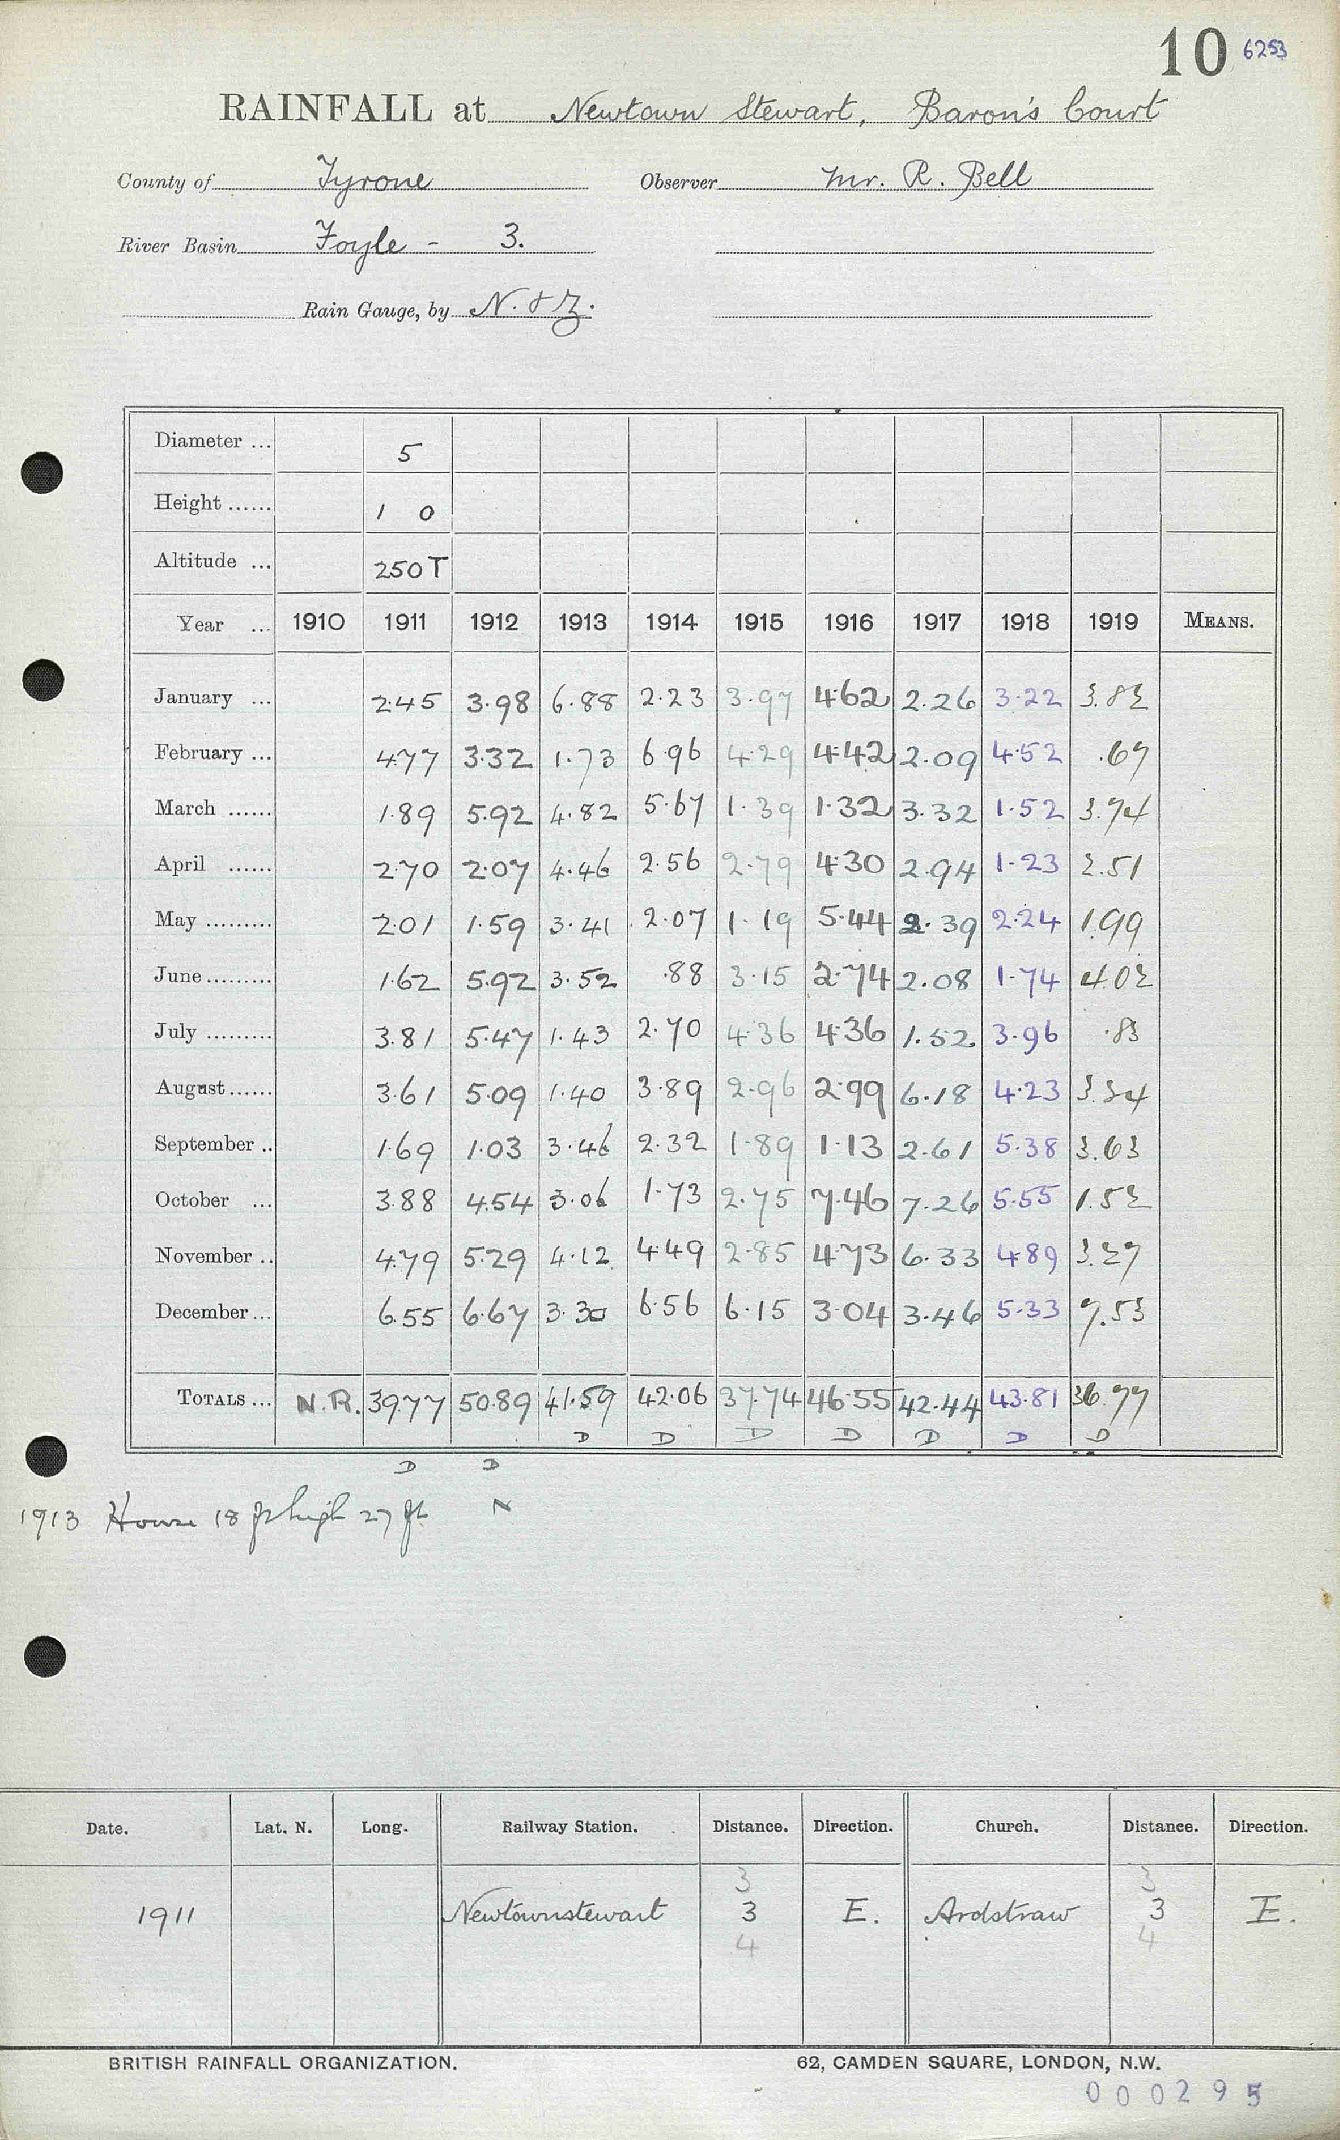 10 6253
RAINFALL at Newtown Stewart, Baron's Court
County of Tyrone Observer Mr. R. Bell
River Basin Foyle - 3.
Rain Gauge, by N. & Z.
Diameter ... 5
Height ...... 1 0
Altitude ... 250T
Year ... 1910 1911 1912 1913 1914 1915 1916 1917 1918 1919 MEANS.
January ... 2.45 3.98 6.88 2.23 3.97 4.62 2.26 3.22 3.82
February ... 4.77 3.32 1.73 6.96 4.29 4.42 2.09 4.52 .67
March ...... 1.89 5.92 4.82 5.67 1.39 1.32 3.32 1.52 3.74
April ...... 2.70 2.07 4.46 2.56 2.79 4.30 2.94 1.23 2.51
May ......... 2.01 1.59 3.41 2.07 1.19 5.44 2.39 2.24 1.99
June ......... 1.62 5.92 3.52 .88 3.15 2.74 2.08 1.74 4.02
July ......... 3.81 5.47 1.43 2.70 4.36 4.36 1.52 3.96 .83
August ...... 3.61 5.09 1.40 3.89 2.96 2.99 6.18 4.23 3.24
September .. 1.69 1.03 3.46 2.32 1.89 1.13 2.61 5.38 3.63
October ... 3.88 4.54 3.06 1.73 2.75 7.46 7.26 5.55 1.52
November .. 4.79 5.29 4.12 4.49 2.85 4.73 6.33 4.89 3.27
December ... 6.55 6.67 3.30 6.56 6.15 3.04 3.46 5.33 7.53
TOTALS ... N.R. 39.77 50.89 41.59 42.06 37.74 46.55 42.44 43.81 36.77
D D D D D D D
D D
1913 House 18 ft high 27 ft N
Date. Lat. N. Long. Railway Station. Distance. Direction. Church. Distance. Direction.
3 3
1911 Newtownstewart 3 E. Ardstraw 3 E.
4 4
BRITISH RAINFALL ORGANIZATION. 62, CAMDEN SQUARE, LONDON, N.W.
000295